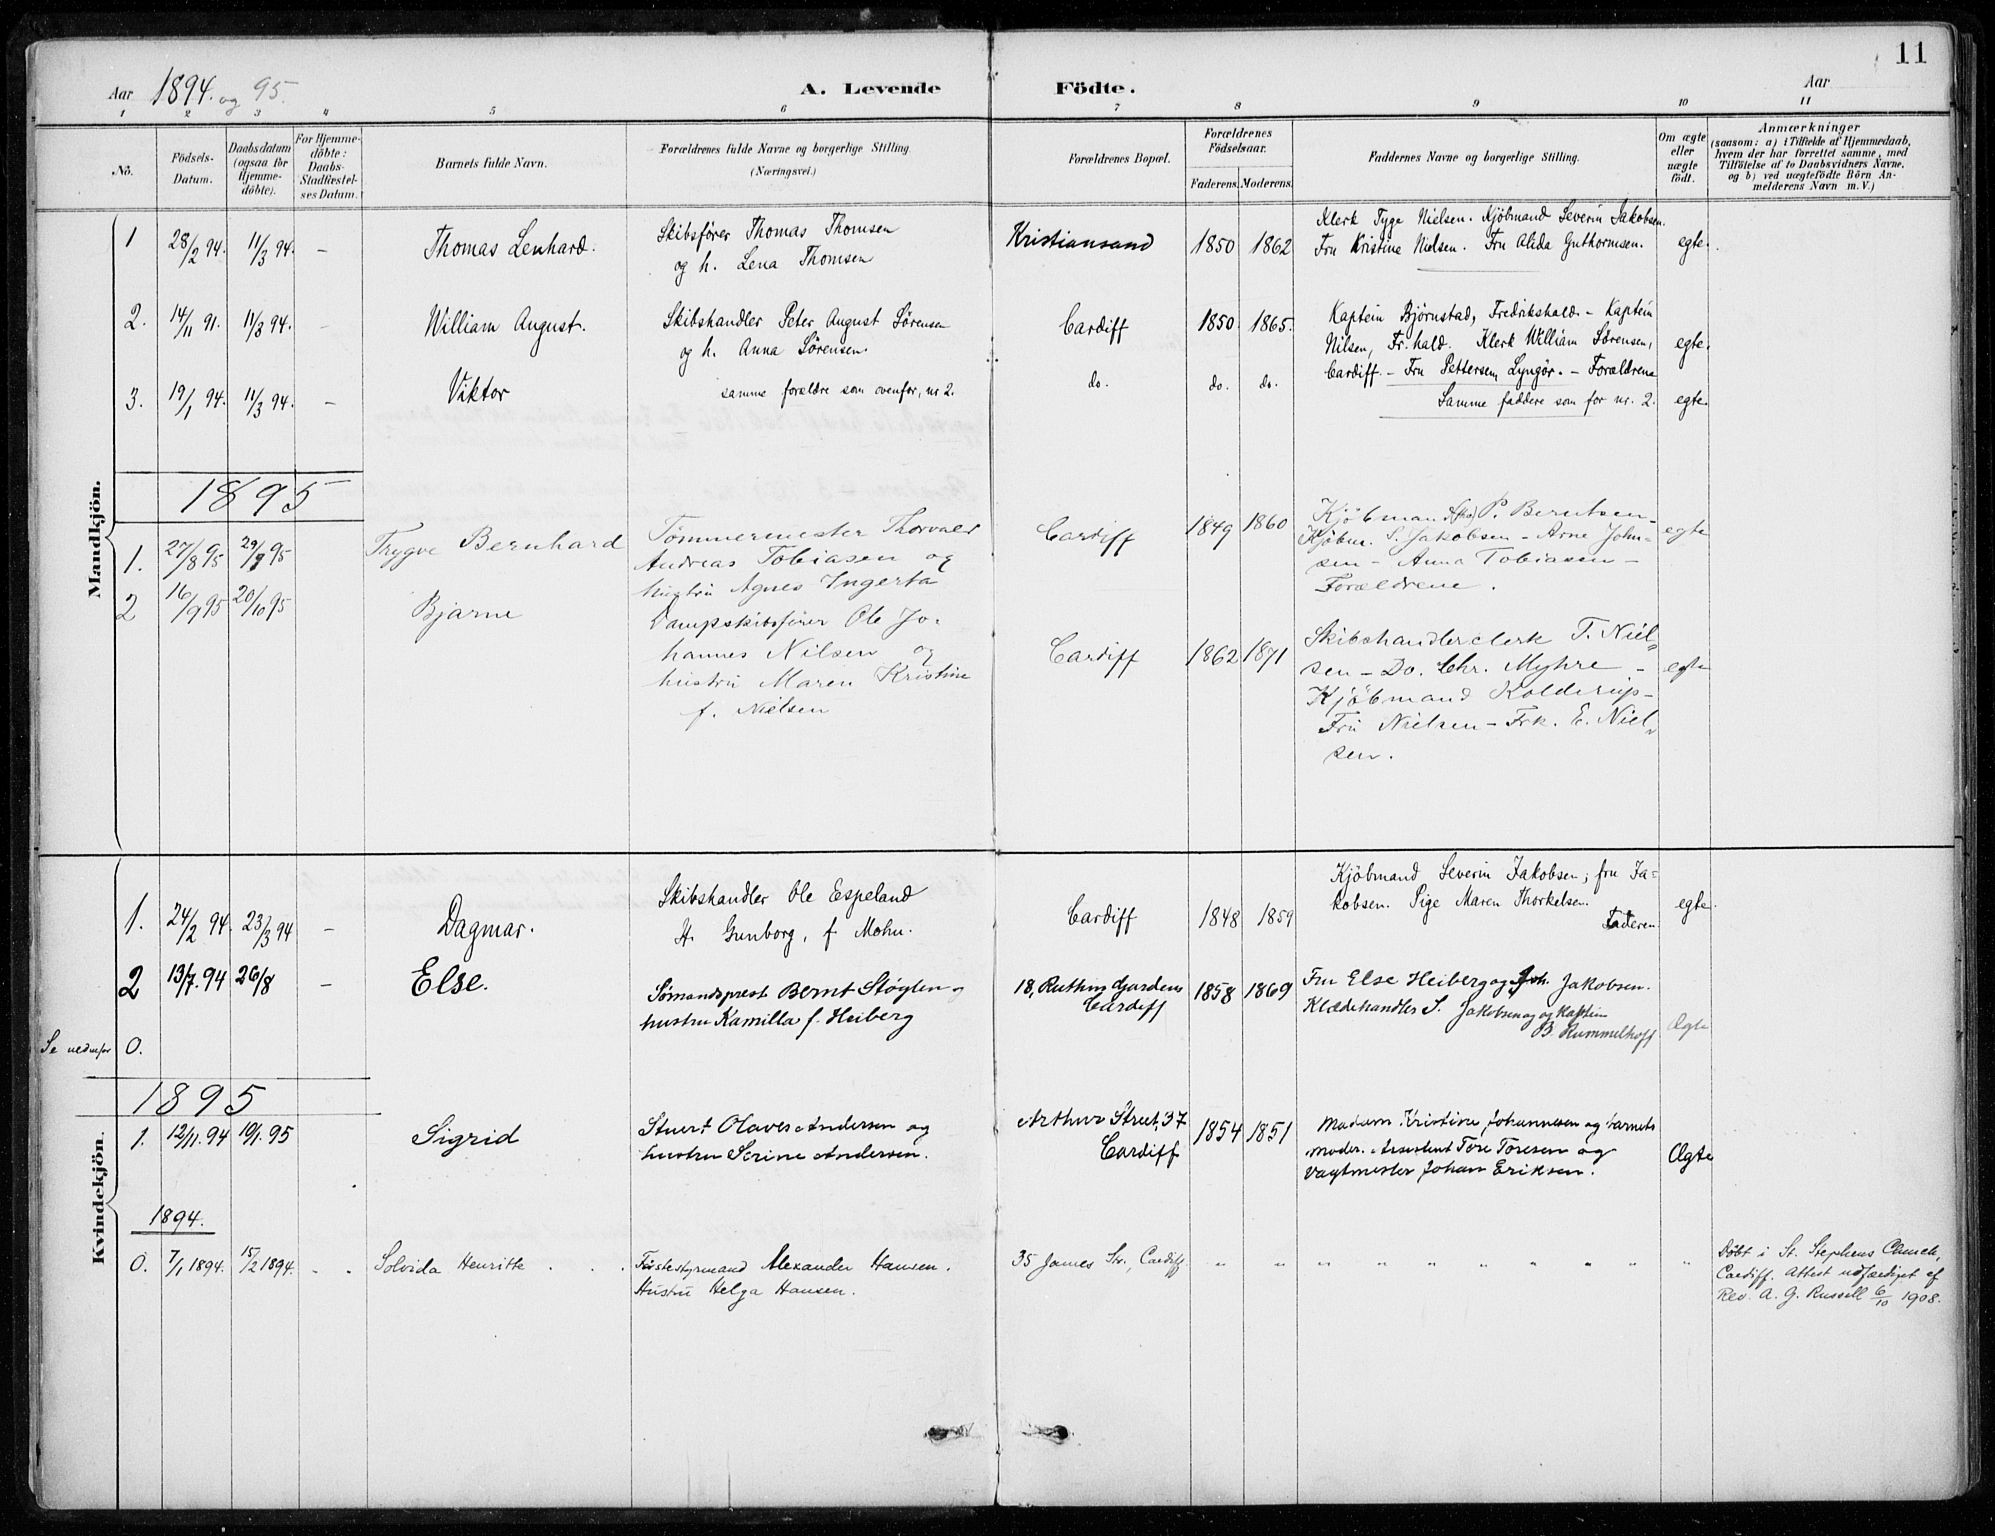 11
Aar 1894. og 95.
A. Levende Födte.
Aar
1 2 3 4 5 6 7 8 9 10 11
No.
Födsels-Datum.
Daabsdatum (ogsaa for Hjemme-döbte).
For Hjemme-döbte: Daabs-Stadfæstel-ses Datum.
Barnets fulde Navn.
Forældrenes fulde Navne og borgerlige Stilling (Næringsvei.)
Forældrenes Bopæl.
Forældrenes Födselsaar.
Faderens. Moderens.
Faddernes Navne og borgerlige Stilling.
Om ægte eller uægte födt.
Anmærkninger
(saasom: a) i Tilfælde af Hjemmedaab,
hvem der har forrettet samme, med
Tilföielse af to Daabsvidners Navne,
og b) ved uægtefödte Börn An-
melderens Navn m. V.)
Mandkjön.
1 28/2 94. 11/3 94. – Thomas Lenhard. Skibsfører Thomas Thomsen Kristiansand 1850 1862 Klerk Tyge Nielsen. Kjöbmand Severin Jakobsen. egte.
og h. Lena Thomsen Fru Kristine Nielsen. Fru Alida Guthormsen.
2. 14/11 91. 11/3 94. – William August. Skibshandler Peter August Sörensen Cardiff 1850. 1865. Kaptein Björnstad, Fredrikshald – Kaptein
og h. Anna Sörensen. Nilsen, Fr.hald. Klerk William Sörensen, egte.
Cardiff – Fru Pettersen, Lyngör. – Forældrene
3. 19/1 94. 11/3 94. – Viktor samme forældre som ovenfor, nr 2. do. do. do. Samme faddere som for nr. 2. egte.
1895
1. 27/8 95 29/9 95 Trygve Bernhard Tömmermester Thorvald Cardiff 1849 1860 Kjöbmand P. Berntsen – egte
Andreas Tobiasen og Kjöbm. S. Jakobsen – Arne John-
hustru Agnes Ingerta sen – Anna Tobiasen –
Forældrene.
2 16/9 95 20/10 95 Bjarne Dampskibsförer Ole Jo- Cardiff 1862 1871 Skibshandlerclerk T. Niel- egte
hannes Nilsen og sen – Do. Chr. Myhre –
hustru Maren Kristine Kjöbmand Kolderup –
f. Nielsen Fru Nielsen – Frk. E. Niel-
sen.
Kvindekjön.
1. 24/2 94. 23/3 94 – Dagmar. Skibshandler Ole Espeland Cardiff 1848 1859 Kjöbmand Severin Jakobsen, fru Ja- egte.
H. Gunborg, f. Mohn. kobsen. Pige Maren Thorkelsen.
Faderen
2 13/7.94 26/8 – Else. Sömandsprest Bernt Støylen og 18, Ruthin Gardens 1858 1869 Fru Else Heiberg og Joh. Jakobsen.
hustru Kamilla f. Heiberg Cardiff Klædehandler S. Jakobsen og Kaptein
B. Rummelhoff Ægte
Se nedenfor 0.
1895
1. 12/11.94 19/1.95 Sigrid Stuert Olaves Andersen og Arthur Street, 37 1854 1851 Madam Kristine Johannesen og barnets
hustru Serine Andersen. Cardiff moder. Assistent Tore Toresen og Ægte
Vagtmester Johan Eriksen.
1894.
0. 7/1 1894. 15/2 1894. – . Solvida Henritte . . . Förstestyrmand Alexander Hansen. 35 James Str., Cardiff. " " " " " " " " " "
Hustru Helga Hansen.
Döbt i St. Stephens Church,
Cardiff. Attest udfærdiget af
Rev. A. G. Russell 6/10 1908.